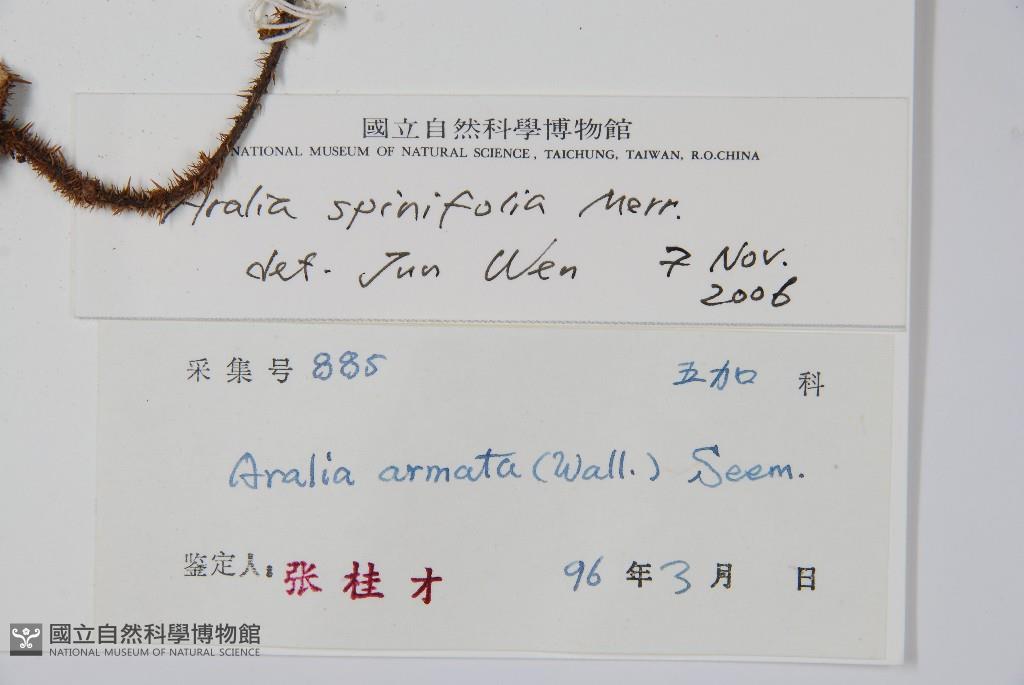 國立自然科學博物館
NATIONAL MUSEUM OF NATURAL SCIENCE, TAICHUNG, TAIWAN, R.O.CHINA
Aralia spinifolia Merr.
det. Jun Wen 7 Nov.
2006
采集号 885 五加 科
Aralia armata (Wall.) Seem.
鉴定人: 张桂才 96 年 3 月 日
國立自然科學博物館
NATIONAL MUSEUM OF NATURAL SCIENCE